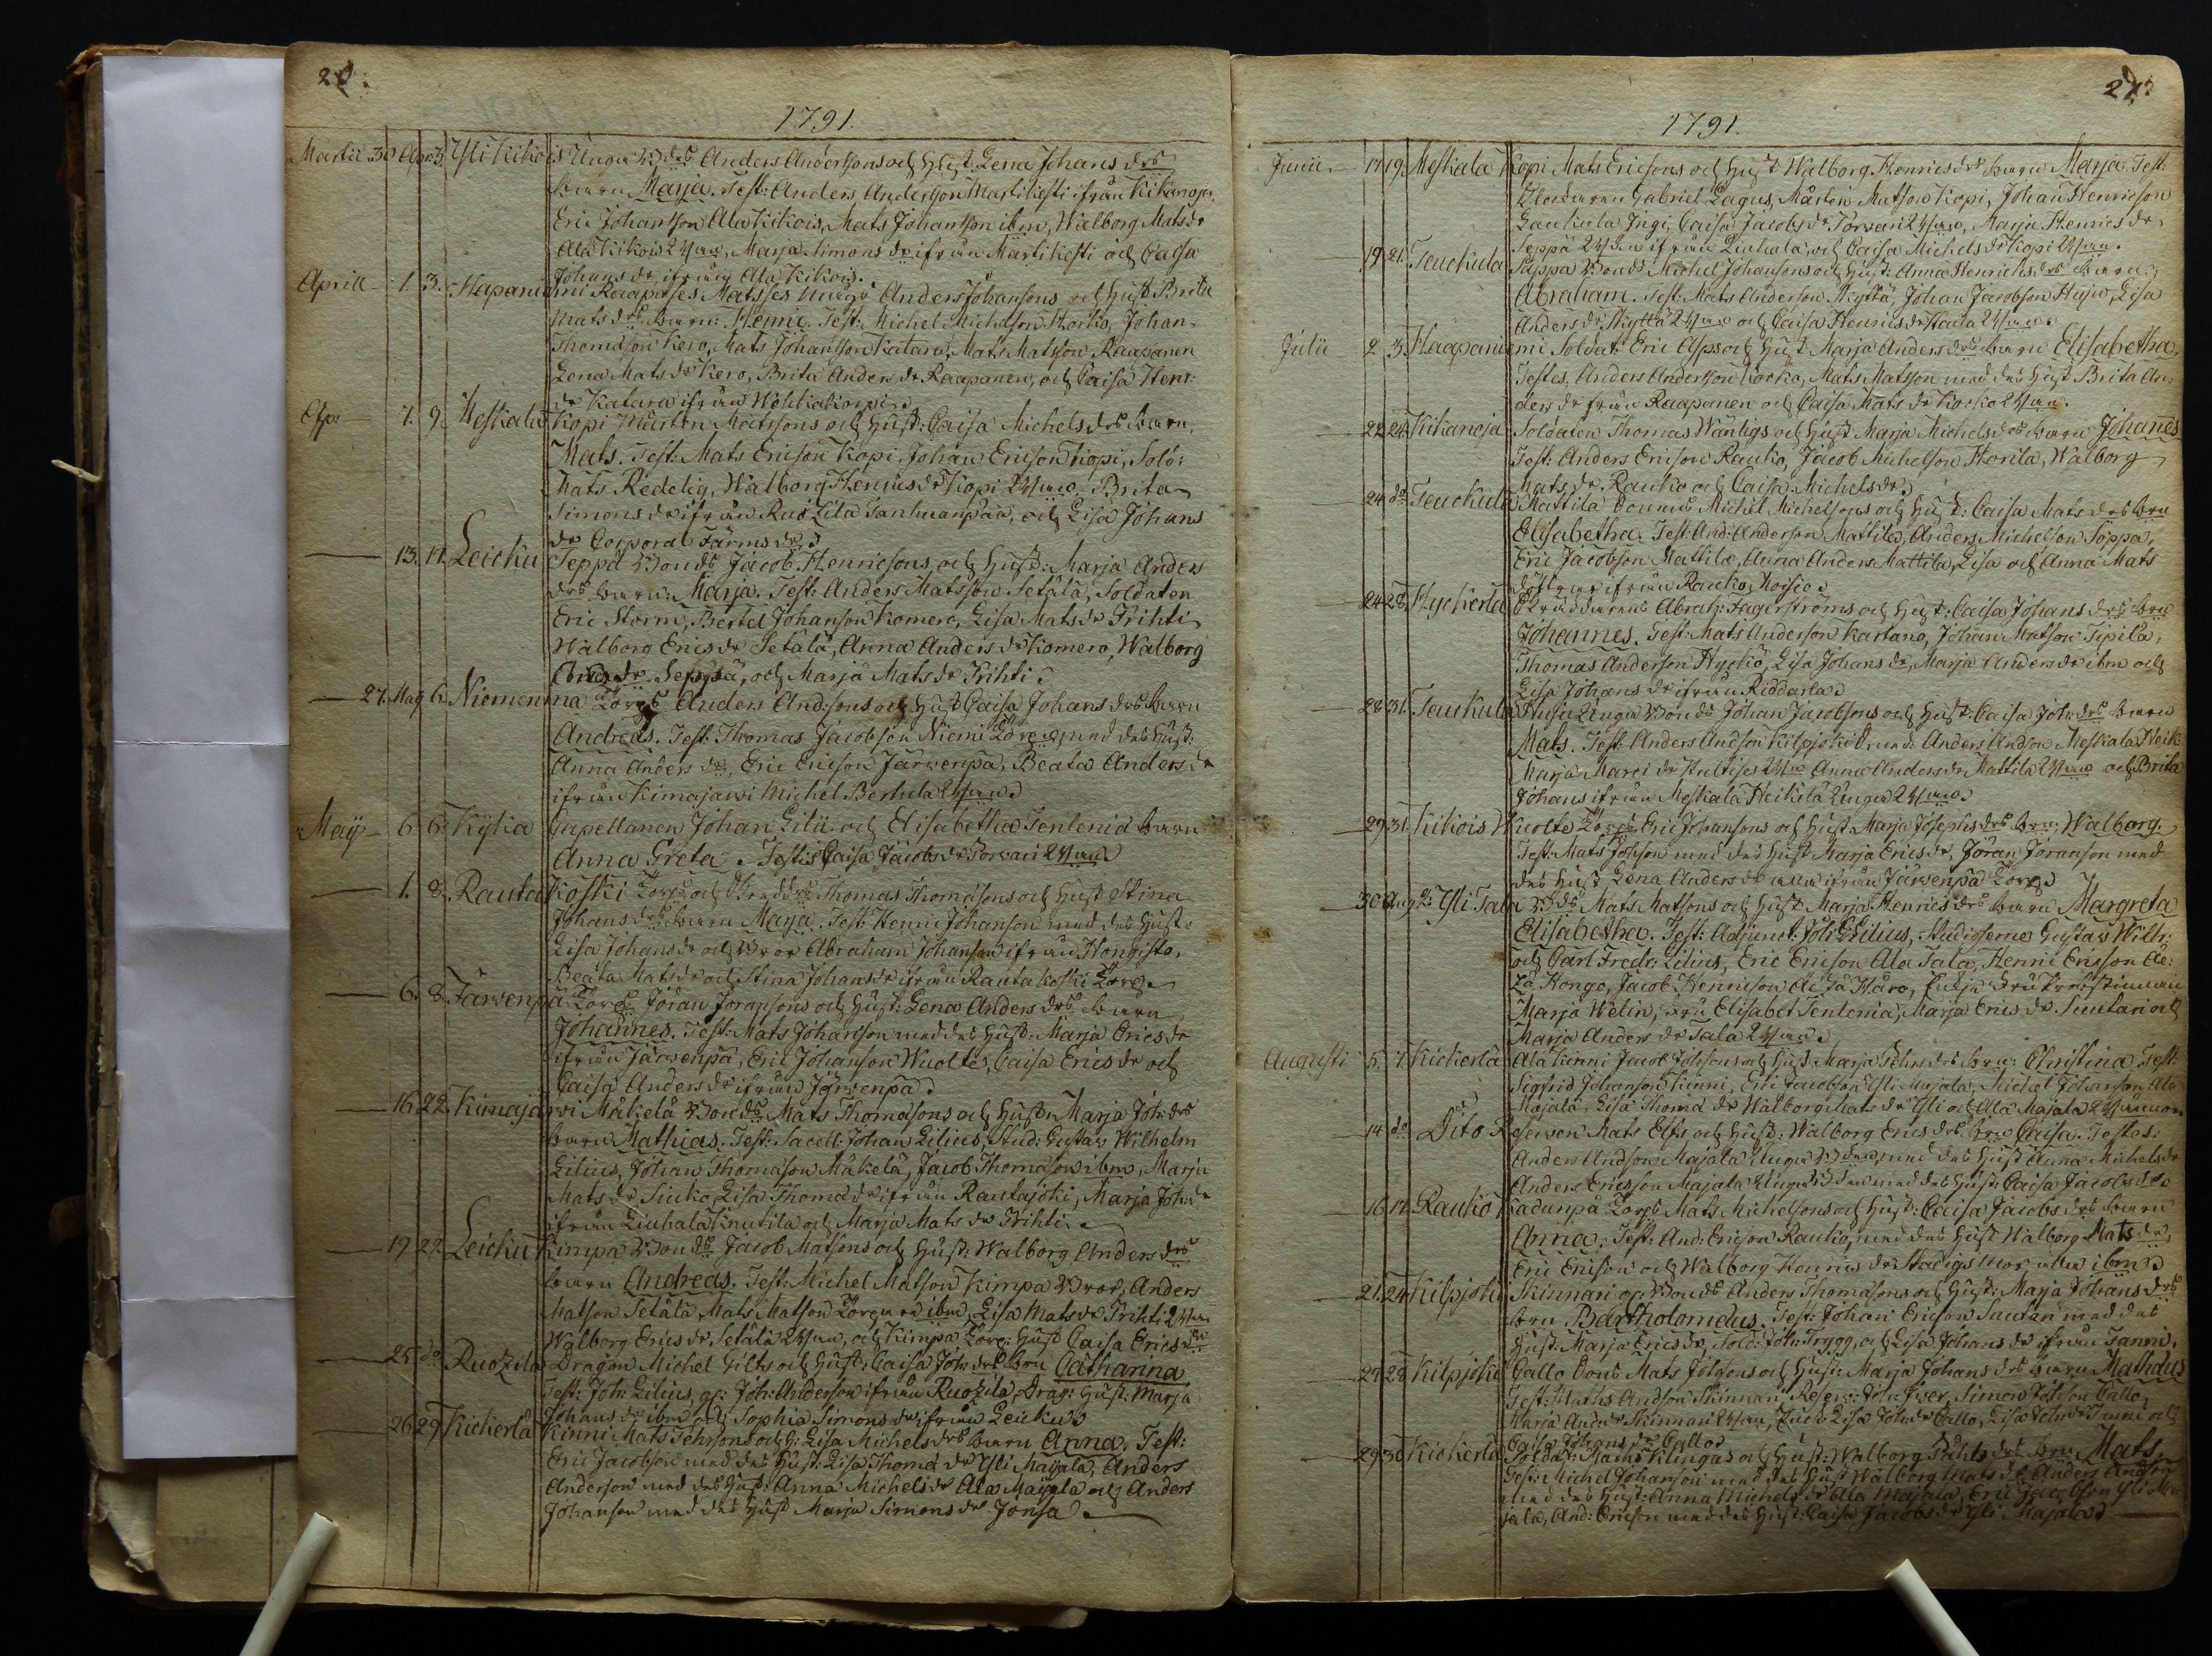 20.
1791.
Martii 30 Apr. 3 Yli Kikois Unga Anders Anderssons och Hust. Lena Johans drs
barn Marja. Test: Anders Andersson Martikesti ifrån Kikanoja,
Eric Johansson Ala Kikois, Mats Johansson ibm, Walborg Mats dr
Ala Kikois, Marja Simons dr ifrån Martikesti och Caisa
Johans dr ifrån Ala Kikois.
Aprill 1. 3. Hapaniemi Raapases Matsses Anders Johansons och Hust. Brita
Mats drs barn: Henric. Test: Michel Michelson Korko, Johan
Thomasson Kero, Mats Johansson Katara, Mats Matsson Raapanen
Lena Mats dr Kero, Brita Anders dr Raapanen, och Caisa Henr:
dr Katara ifrån
Apr. 7. 9. Meskala Kopi Mårten Matssons och Hust: Caisa Michels drs barn
Mats. Test: Mats Ericson Kopi, Johan Ericson Kopi, Sold:
Mats Redelig, Walborg Henrics dr Kopi, Brita
Simons dr ifrån Ruozila Tanhuanpää, och Lisa Johans
dr Corporal
13. 17. Leicku Seppä Bonds Jacob Henricsons och Hust: Marja Anders
drs barn: Marja. Test: Anders Matsson Setälä, Soldaten
Eric Storm, Bertel Johanson Komero, Lisa Mats dr Prihti
Walborg Erics dr Setälä, Anna Anders dr Komero, Walborg
dr Seppä, och Marja Mats dr Prihti
27. Maj 6. Niemenma Torps Anders Andersons och Hust Caisa Johans drs barn
Andreas. Test: Thomas Jacobson Niemi Torp, med des Hust:
Anna Anders dr, Eric Ericson Järwenpä, Beata Anders dr
ifrån Kimajärwi Michel Bertula
Maji 6. 6. Kyka Capellanen Johan Lilii och Elisabetha Tenlenia barn
Anna Greta. Testis Caisa Jacobs dr Porwari
1. 8. Rautakoski Torps och Thomas Thomasons och Hust Stina
Johans drs barn Marja. Test: Henric Johanson med des Hust:
Lisa Johans dr och Bror Abraham Johanson ifrån Hongisto,
Beata Mats dr och Stina Johans dr ifrån Rautakoski Torp
6. 8. Järwenpä Torps Jöran Joransons och Hust: Lena Anders drs barn
Johannes. Test: Mats Johanson med des Hust: Marja Erics dr
ifrån Järwenpä, Eric Johanson Wuolte, Caisa Erics dr och
Caisa Anders dr ifrån Järwenpä.
16. 22. Kimajärwi Mäkelä Bonds Mats Thomasons och Hust: Marja Joh: drs
barn Mathias. Test: Sacell: Johan Lilius, Stud: Gustav Wilhelm
Lilius, Johan Thomason Mäkelä, Jacob Thomason ibm, Marja
Mats dr Siuko, Lisa Thoma dr ifrån Rautajoki, Marja Joh: dr
ifrån Liuhala Knutila och Marja Mats dr Prihti.
19. 22. Leicku Kimpa Bonds Jacob Matsons och Hust: Walborg Anders drs
barn Andreas. Test: Michel Matson Kimpa Bror, Anders
Matson Setälä, Mats Matson Torpare ibm, Lisa Mats dr Prihti
Walborg Erics dr Setälä, och Kimpa Torp: Hust Caisa Erics dr
25. do Ruozila Dragon Michel Gilts och Hust: Caisa Joh: drs barn Catharina
Test: Joh: Lilius, Joh: Anderson ifrån Ruozila, Drag: Hust: Marja
Johans dr ibm och Sophia Simons dr ifrån Leicku
26. 29 Kickerla Kinni Mats Johssons och H: Lisa Michels drs barn Anna. Test:
Eric Jacobson med des Hust: Lisa Thoma dr Yli Majala, Anders
Anderson med des Hust: Anna Michels dr Ala Majala och Anders
Johanson med des Hust Marja Simons dr Jonsa.
1791.
Junii 17 19. Meskala Kopi Mats Ericsons och Hust Walborg Henrics drs barn Marja. Test:
Klockaren Gabriel Lagus, Mårten Matson Kopi, Johan Henricson
Laukula Jngi, Caisa Jacobs dr Porwari, Marja Henrics dr
Seppä ifrån Liuhala, och Caisa Michels dr Kopi
19. 21. Teuckula Sappa Bonds Michel Johansons och Hust: Anna Henrichs drs barn
Abraham. Test: Mats Anderson Skyttä, Johan Jacobson Huju, Lisa
Anders dr Skyttä och Caisa Henrics dr
Julii 2. 3. Haapaniemi Soldat: Eric Asps och Hust Marja Anders drs barn Elisabetha.
Testes, Anders Andersson Korko, Mats Matsson med des Hust Brita An-
ders dr från Raapanen och Caisa Mats dr Korko
22. 24. Kikanoja Soldaten Thomas Wänligs och Hust Marja Michels drs barn Johannes
Test: Anders Ericson Rauko, Jacob Michelson Horila, Walborg
Mats dr Rauko och Caisa Michels dr
24. do Teuckula Mattila Michel Michelsons och Hust: Caisa Mats drs barn
Elisabetha. Test: And: Anderson Mattila, Anders Michelson Soppa,
Eric Jacobson Mattila, Anna Anders Mattila, Lisa och Anna Mats
ifrån Rauko
24 28. Hyckerla Abrah: Fagerströms och Hust: Caisa Johans drs barn
Johannes. Test: Mats Anderson Kartano, Johan Matson Sipila,
Thomas Anderson Hyckiö, Lisa Johans dr, Marja Anders dr ibm och
Lisa Johans dr ifrån Riddarla
28 31. Teuckula Huju Unga Bonds Johan Jacobsons och Hust: Caisa Joh: drs barn
Mats. Test: Anders Andson Kilpjoki, Anders Andson Meskala Heik
Marja Marci dr, Anna Anders dr Mattila och Brita
Johans ifrån Meskala Heikilä Unga
29. 31. Kikois Wuolte Torps Eric Johansons och Hust: Marja Josephs drs barn: Walborg.
Test: Mats Johson med des Hust Marja Erics dr, Jöran Joranson med
des Hust Lena Anders dr ifrån Järwenpä Torp
30 Aug 2. Yli Tala Mats Matsons och Hust Marja Henrics drs barn Margreta
Elisabetha. Test: Adjunct: Joh: Lilius, Studioserne Gustav Wilh:
och Carl Fredr: Lilius, Eric Ericson Ala Tala, Henric Ericson
Hongo, Jacob Henricson Haro, Enkje Fru
Marja Welin, Fru Elisabet Tenlenia, Marja Erics dr Suutari och
Marja Anders dr Tala
Augusti 5. 7. Kickerla Ala Kinni Jacob Johssons och Hust Marja Johs drs barn: Christina. Test:
Sigfrid Johanson Kinni, Eric Jacobson Yli Majala, Michel Johanson Ala
Majala, Lisa Thoma dr Walborg Mats dr Yli och Ala Majala
14 do Dito Reserven Mats Elfs och Hust: Walborg Erics drs barn Caisa. Testes:
Anders Andson Majala Unga, med des Hust Anna Michels dr
Anders Ericsson Majala Unga med des Hust: Caisa Jacobs dr
16. 17. Raukio Torps Mats Michelsons och Hust: Caisa Jacobs drs barn
Anna. Test: And: Ericson Raukio, med des Hust Walborg Mats dr,
Eric Ericson och Walborg Henrics dr Stadigs Mor, alla ibm
21. 24 Kilpjoki Skinnari Bonds Anders Thomasons och Hust: Marja Johans drs
barn Bartholomæus. Test: Johan Ericson Suutari med des
Hust: Marja Erics dr, Sold: Joh: Trygg, och Lisa Johans dr ifrån Janni.
27 28 Kilpjoki Gallo Mats Johssons och Hust: Marja Johans drs barn Mathæus
Test: Mats Andson Skinnari, Reserv: Joh: Jver, Simon Johson Gallo,
Marja Anders Skinnari, Lisa Joh: dr Gallo, Lisa Joh: dr Janni och
Caisa Johans dr Gallo
29 30 Kickerla Soldat: Mats Vilingas och Hust: Walborg drs barn Mats
Test: Michel Johanson med des Hust Walborg Mats dr, Anders Andson
med des Hust: Anna Michels dr Ala Majala, Eric Jacobson Yli Ma-
jala, And: Ericson med des Hust: Caisa Jacobs dr Yli Majala